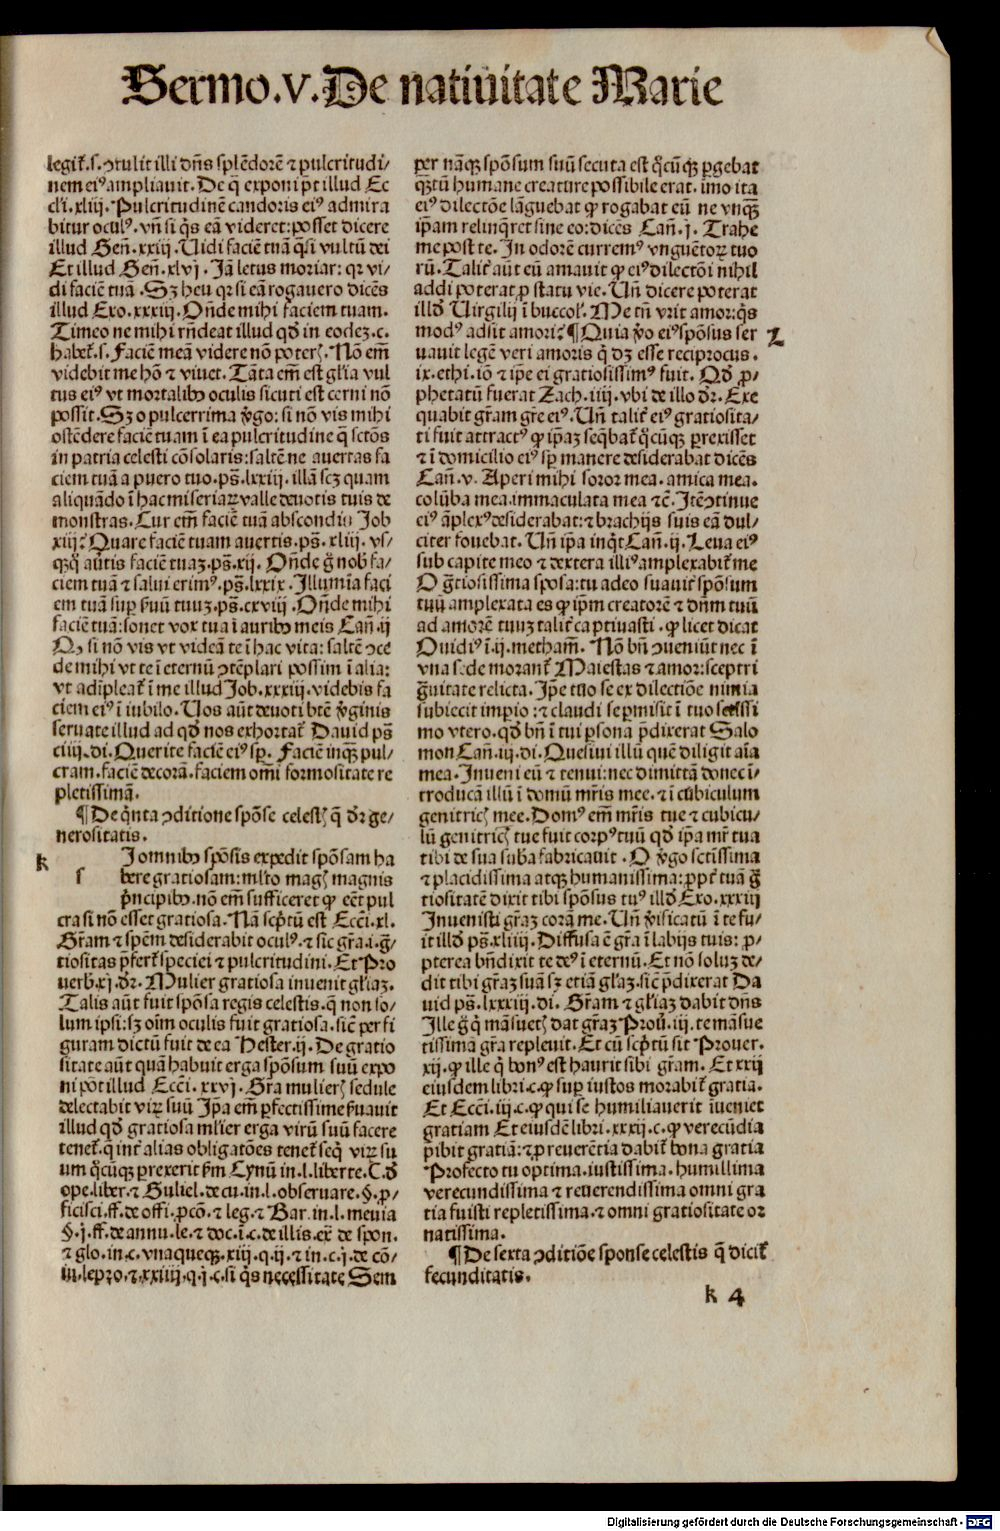 Sermo.v. De natiuitate Marie
legit̃.s. ↄtulit illi dn̄s splēdorē ⁊ pulcritudi/
nem eiꝰ ampliauit. De q̄ exponi pōt illud Ec
cl̓i. xliij. Pulcritudinē candoris eiꝰ admira
bitur oculꝰ. vn̄ si q̄s eā videret: posset dicere
illud Gen̄. xxiij. Uidi faciē tuā q̄si vultū dei
Et illud Gen̄. xlvj. Jā letus moriar: qꝛ vi/
di faciē tuā. Sꝫ heu qꝛ si eā rogauero dicēs
illud Exo. xxxiij. On̄de mihi faciem tuam.
Timeo ne mihi rn̄deat illud qd̓ in eodeꝫ .c.
habet̃.s. Faciē meā videre nō poterꝭ. Nō em̄
videbit me hō ⁊ viuet. Tāta em̄ est gl̓ia vul
tus eiꝰ vt mortalibꝰ oculis sicuti est cerni nō
possit. Sꝫ o pulcerrima ꝟgo: si nō vis mihi
ostēdere faciē tuam ī ea pulcritudine q̄ sctōs
in patria celesti cōsolaris: saltē ne auertas fa
ciem tuā a puero tuo. ps̄. lxxiij. illā scꝫ quam
aliquādo ī hac miseriaꝝ valle deuotis tuis de
monstras. Cur em̄ faciē tuā abscondis Job
xiij? Quare faciē tuam auertis. ps̄. xliij. vs/
q̄q̄ au̓tis faciē tuaꝫ. ps̄. xij. On̄de g̊ nob̓ fa/
ciem tuā ⁊ salui erimꝰ. ps̄. lxxix. Illumīa faci
em tuā sup̱ ẜuū tuuꝫ. ps̄. cxviij. On̄de mihi
faciē tuā: sonet vox tua ī auribꝰ meis Can̄. ij
Qꝫ si nō vis vt videā te ī hac vita: saltē ↄce
de mihi vt te ī eternū ↄtēplari possim ī alia:
vt adīpleat̃ ī me illud Job. xxxiij. videbis fa
ciem eiꝰ ī iubilo. Uos aūt deuoti btē ꝟginis
seruate illud ad qd̓ nos exhortat̃ Dauid ps̄
ciiij. di. Querite faciē eiꝰ sp̱. Faciē inqꝫ pul/
cram. faciē decorā. faciem om̄i formositate re
pletissimā.
¶ De q̄nta ↄditione spōse celestꝭ q̄ dr̄ ge/
nerositatis.
k
s
J omnibꝰ spōsis expedit spōsam ha
bere gratiosam: ml̓to magꝭ magnis
p̄ncipibꝰ. nō em̄ sufficeret ꝙ eēt pul
cra si nō esset gratiosa. Nā scp̄tū est Eccī. xl.
Gr̄am ⁊ spēm desiderabit oculꝰ. ⁊ sic gr̄a .i. g̃/
tiositas p̄fert̃ speciei ⁊ pulcritudini. Et Pro
uerb̓. xj. dr̄. Mulier gratiosa inuenit gl̓iaꝫ.
Talis aūt fuit spōsa regis celestis. q̄ non so/
lum ipsi: sꝫ oīm oculis fuit gratiosa. sic̄ per fi
guram dictū fuit de ea Hester. ij. De gratio
sitate aūt quā habuit erga spōsum suū expo
ni pōt illud Eccī. xxvj. Gr̄a mulierꝭ sedule
delectabit viꝝ suū Jpā em̄ ꝑfectissime ẜuauit
illud qd̓ gratiosa ml̓ier erga virū suū facere
tenet̃. q̄ int̓ alias obligatōes tenet̃ seq̄ viꝝ su
um q̄cūqꝫ ꝑrexerit ẜm Cynū in .l. liberte. C. d̓
ope. liber. ⁊ Guliel. de cu. in .l. obseruare. §. ꝓ/
ficisci. ff. de offi. ꝓcō. ⁊ leg. ⁊ Bar. in .l. meuia
§. j. ff. de annu. le. ⁊ doc. ī .c. de illis. ex̄ de spon.
⁊ glo. in .c. vnaqueqꝫ. xiij. q. ij. ⁊ in .c. j. de cō/
iu. lepro. ⁊ xxiiij. q. j. c. si q̄s necessitate Sem
per nāqꝫ spōsum suū secuta est q̄cūqꝫ ꝑgebat
q̄ꝫtū humane creature possibile erat. imo ita
eiꝰ dilectōe lāguebat ꝙ rogabat eū ne vnq̄ꝫ
ip̄am relinq̄ret sine eo: dicēs Can̄. j. Trahe
me post te. In odorē curremꝰ vnguētoꝝ tuo
rū. Talit̓ aūt eū amauit ꝙ eiꝰ dilectōi nihil
addi poterat ꝓ statu vie. Un̄ dicere poterat
illd̓ Uirgilij ī buccol̓. Me tn̄ vrit amor: q̄s
modꝰ adsit amori? ¶ Quia ꝟo eiꝰ spōsus ser
l
uauit legē veri amoris q̄ dꝫ esse reciprocus.
ix. ethi. iō ⁊ ip̄e ei gratiosissimꝰ fuit. Qd̓ ꝓ/
phetatū fuerat Zach. iiij. vbi de illo dr̄. Exe
quabit gr̄am gr̄e eiꝰ. Un̄ talit̓ eiꝰ gratiosita/
ti fuit attractꝰ ꝙ ip̄aꝫ seq̄bat̃ q̄cūqꝫ ꝑrexisset
⁊ ī domicilio eiꝰ sp̱ manere desiderabat dicēs
Can̄. v. Aperi mihi soror mea. amica mea.
colūba mea. immaculata mea ⁊c̄. Itē ↄtinue
eiꝰ āplexꝰ desiderabat: ⁊ brachijs suis eā dul/
citer fouebat. Un̄ ip̄a inq̄t Can̄. ij. Leua eiꝰ
sub capite meo ⁊ dextera illiꝰ amplexabit̃ me
O g̃tiosissima spōsa: tu adeo suauit̓ spōsum
tuū amplexata es ꝙ ip̄m creatorē ⁊ dn̄m tuū
ad amorē tuuꝫ talit̓ captiuasti. ꝙ licet dicat
Ouidiꝰ ī. ij. metham̄. Nō bn̄ ↄueniūt nec ī
vna sede morant̃ Maiestas ⁊ amor: sceptri
g̃uitate relicta. Ip̄e tn̄o se ex dilectiōe nimia
subiecit imꝑio: ⁊ claudi se ꝑmisit ī tuo sctīssi
mo vtero. qd̓ bn̄ ī tui ꝑsona p̄dixerat Salo
mon Can̄. iij. di. Quesiui illū quē diligit aīa
mea. Inueni eū ⁊ tenui: nec dimittā donec ī/
troducā illū ī domū mr̄is mee. ⁊ ī cubiculum
genitricꝭ mee. Domꝰ em̄ mr̄is tue ⁊ cubicu/
lū genitricꝭ tue fuit corpꝰ tuū qd̓ ip̄a mr̄ tua
tibi de sua sub̄a fabricauit. O ꝟgo sctīssima
⁊ placidissima atqꝫ humanissima: ꝓpt̓ tuā g̃
tiositatē dixit tibi spōsus tuꝰ illd̓ Exo. xxxiij
Inuenisti gr̄aꝫ corā me. Un̄ ꝟificatū ī te fu/
it illd̓ ps̄. xliiij. Diffusa ē gr̄a ī labijs tuis: ꝓ/
pterea bn̄dixit te deꝰ ī eternū. Et nō soluꝫ de/
dit tibi gr̄aꝫ suā sꝫ etiā gl̓iaꝫ. sic̄ p̄dixerat Da
uid ps̄. lxxxiij. di. Gr̄am ⁊ gl̓iaꝫ dabit dn̄s
Ille g̊ q̄ māsuetꝭ dat gr̄aꝫ Prou̓. iij. te māsue
tissimā gr̄a repleuit. Et cū scp̄tū sit Prouer.
xij. ꝙ ille q̄ bonꝰ est haurit sibi gr̄am. Et xxij
eiusdem libri .c. ꝙ sup̱ iustos morabit̃ gratia.
Et Eccī. iij. c. ꝙ qui se humiliauerit īueniet
gratiam Et eiusdē libri. xxxij. c. ꝙ verecūdia
p̄ibit gratiā: ⁊ ꝓ reuerētia dabit̃ bona gratia
Profecto tu optima. iustissima. humillima
verecundissima ⁊ reuerendissima omni gra
tia fuisti repletissima. ⁊ omni gratiositate or
natissima.
¶ De sexta ↄditiōe sponse celestis q̄ dicit̃
fecunditatis.
k 4
Digitalisierung gefördert durch die Deutsche Forschungsgemeinschaft - DFG